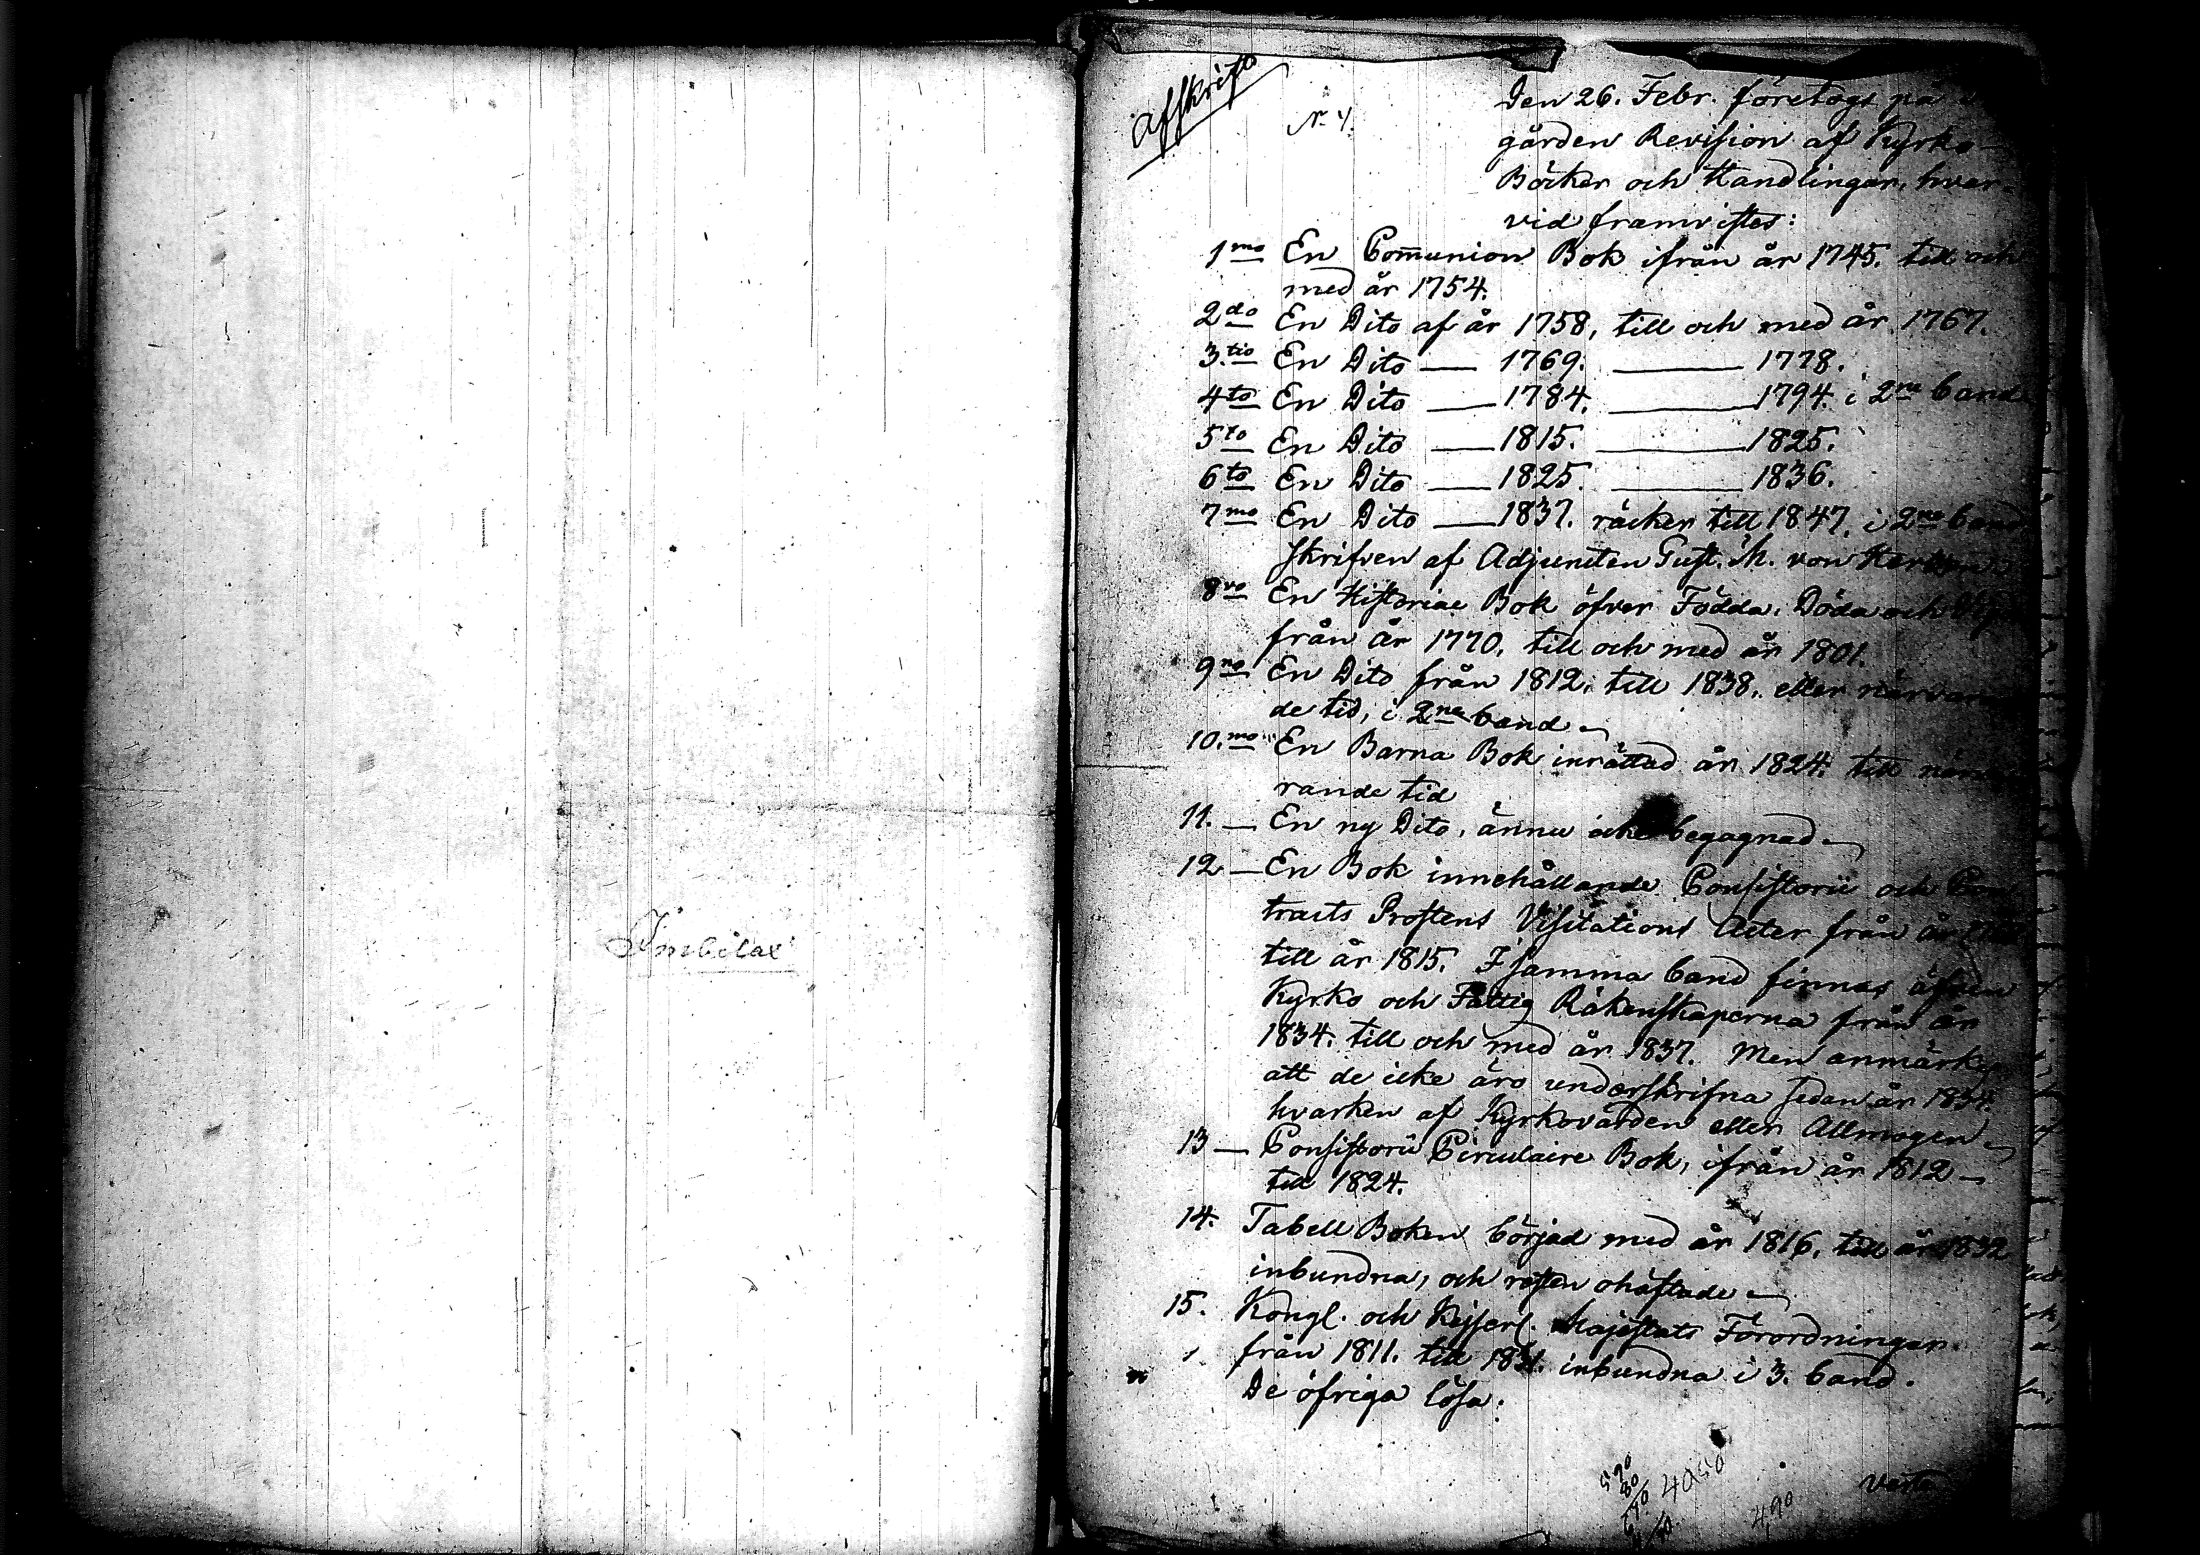 Imbilax
Afskrift
N. 4.
Den 26. Febr. företogs på
gården Revision af Kyrko-
Böcker och Handlingar, hvar-
vid framvistes:
1mo En Com̄union Bok ifrån år 1745. till och
med år 1754.
2do En Dito af år 1758, till och med år 1767.
3.tio En Dito — 1769. — 1778.
4to En Dito — 1784. — 1794. i 2ne band
5to En Dito — 1815. — 1825.
6to En Dito — 1825. — 1836.
7mo En Dito — 1837. räcker till 1847. i 2ne band
skrifven af Adjuncten Gust. M. von
8vo En Historiae Bok öfver Födda, Döda och
från år 1770. till och med år 1801.
9no En Dito från 1812. till 1838. eller närvaran
de tid, i 2ne band
10.mo En Barna Bok inrättad år 1824. till närva
rande tid
11. — En ny Dito, ännu icke begagnad.
12 — En Bok innehållande Consistorii och Con
tracts Prostens Visitations Acter från år
till år 1815. I samma band finnas äfven
Kyrko och Fattig Räkenskaperna från år
1834. till och med år 1837. Men anmärkes
att de icke äro underskrifna sedan år 1834.
hvarken af Kyrkovärden eller Allmogen
13 — Consistorii Circulaire Bok, ifrån år 1812 —
till 1824.
14. Tabell Boken börjad med år 1816, till år 1832
inbundna, och resten ohäftade
15. Kongl. och Kejserl. Majestäts Förordningar
från 1811. till 1831. inbundna i 3. band.
De öfriga lösa.
4050
490
Verte